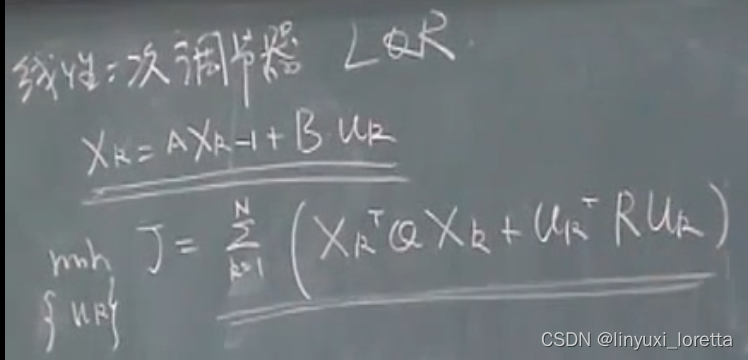 线性二次调节器 LQR.
X_k = A X_{k-1} + B u_k
min J = \sum_{k=1}^{N} (X_k^T Q X_k + u_k^T R u_k)
{u_k}
CSDN @linyuxi_loretta